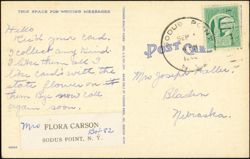 THIS SPACE FOR WRITING MESSAGES
Hello
Rec'd your card.
I collect any kind
I like them all I
like cards with the
state flowers on
them Bye now call
again soon.
Mrs FLORA CARSON
Box 52
SODUS POINT, N. Y.
POST CARD
SODUS POINT
Mrs Joseph Haller
Bladen
Nebraska.